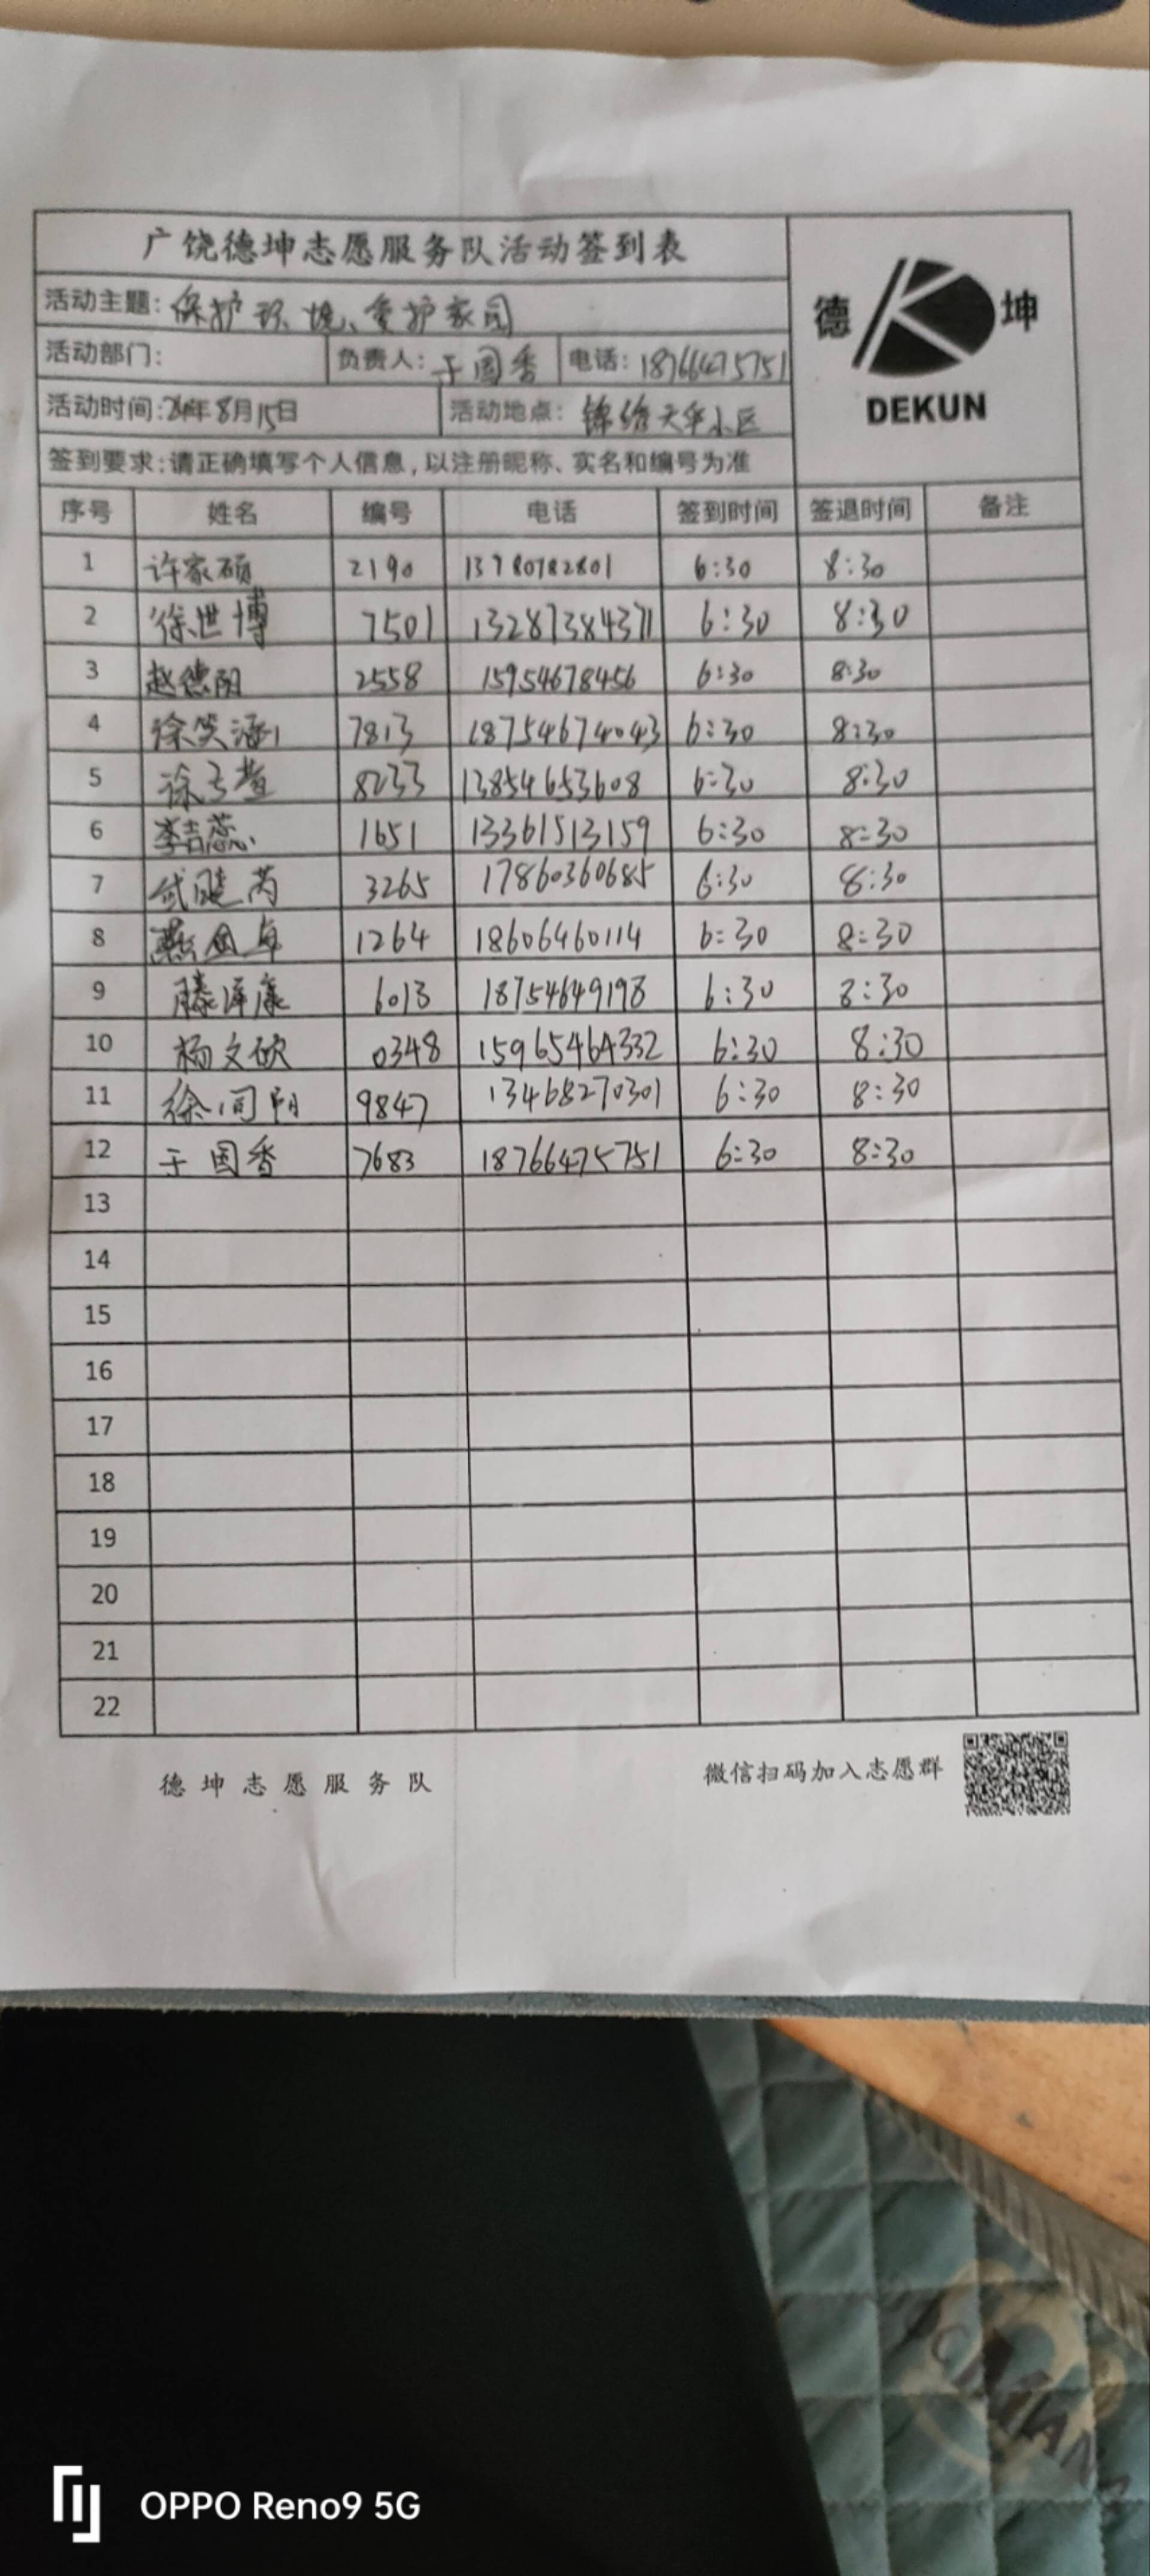 广饶德坤志愿服务队活动签到表
活动主题: 保护环境、爱护家园
德 坤
DEKUN
活动部门: 负责人: 于国香 电话: 18766475751
活动时间:24年8月15日 活动地点: 锦绣天华小区
签到要求:请正确填写个人信息,以注册昵称、实名和编号为准
序号 姓名 编号 电话 签到时间 签退时间 备注
1 许家硕 2190 13780782801 6:30 8:30
2 徐世博 7501 13287384371 6:30 8:30
3 赵德阳 2558 15954678456 6:30 8:30
4 徐笑涵 7813 18754674043 6:30 8:30
5 徐 8233 13854653608 6:30 8:30
6 李吉蕊 1651 13361513159 6:30 8:30
7 3265 17860360685 6:30 8:30
8 1264 18606460114 6:30 8:30
9 滕泽康 6013 18754649198 6:30 8:30
10 杨文欣 0348 15965464332 6:30 8:30
11 徐 阳 9847 13468270301 6:30 8:30
12 于国香 7683 18766475751 6:30 8:30
13
14
15
16
17
18
19
20
21
22
德坤志愿服务队 微信扫码加入志愿群
OPPO Reno9 5G